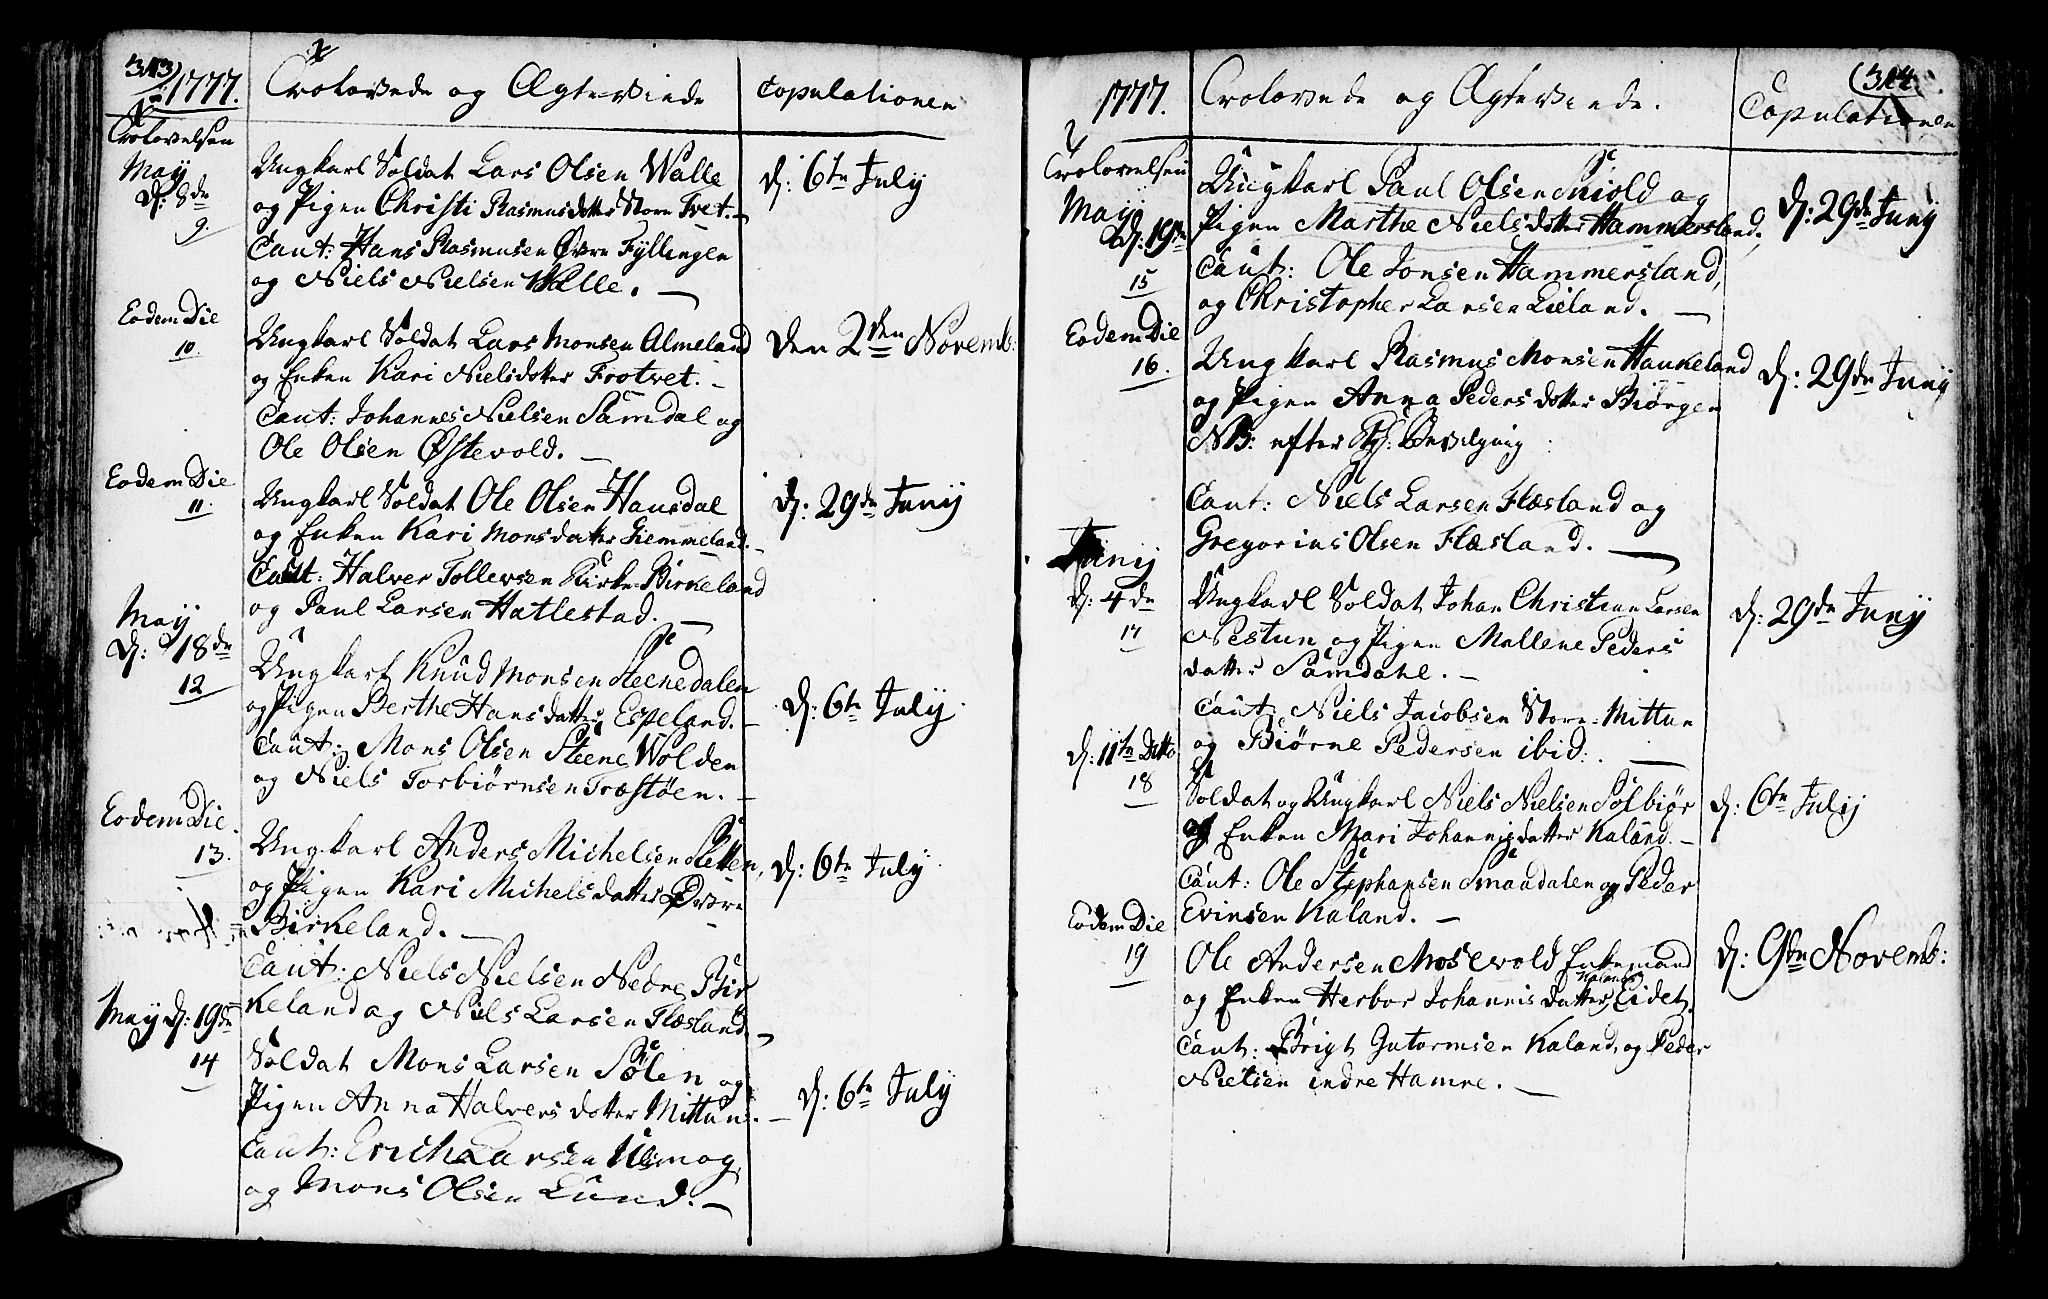 313)
1777.
Trolovede og Ægteviede
Copulationen
Trolovelsen
May
d: 8de
9.
Ungkarl Soldat Lars Olsen Walle
og Pigen Christi Rasmusdotter Store Tvet.
Caut: Hans Rasmusen Øvre Fyllingen
og Niels Nielsen Walle.
d: 6te July
Eodem Die
10.
Ungkarl Soldat Lars Monsen Almeland
og Enken Kari Nielsdotter Frotvet.
Caut: Johannes Nielsen Samdal og
Ole Olsen Østevold.
den 2den Novemb:
Eodem Die
11.
Ungkarl Soldat Ole Olsen Hausdal
og Enken Kari Monsdatter Giemmeland.
Caut: Halver Tollevsen Kirke Birkeland
og Paul Larsen Hatlestad.
d: 29de Juny
May
d: 18de
12
Ungkarl Knud Monsen Steenedalen
og Pigen Berthe Hansdatter Espeland.
Caut: Mons Olsen Steene Wolden
og Niels Torbiørnsen Træstøen.
d: 6te July
Eodem Die.
13.
Ungkarl Anders Michelsen Sletten,
og Pigen Kari Michelsdatter Øvre
Birkeland.
Caut: Niels Nielsen Nedre Bir
keland og Niels Larsen Flæsland.
d: 6te July
May d: 19de
14
Soldat Mons Larsen Sølen og
Pigen Anna Halvers dotter Mittun.
Caut: Erich Larsen
og Mons Olsen Lund.
d: 6te July
(314.
1777.
Trolovede og Ægteviede.
Copulationen
Trolovelsen
May
d: 19de
15
Ungkarl Paul Olsen Skiold og
Pigen Marthe Nielsdotter Hammersland.
Caut: Ole Jonsen Hammersland,
og Christopher Larsen Lieland.
d: 29de Juny
Eodem Die
16.
Ungkarl Rasmus Monsen Haukeland
og Pigen Anna Pedersdotter Biørgen
NB: efter Bevilgning
Caut: Niels Larsen Flæsland og
Gregorius Olsen Flæsland.
d: 29de Juny
Juny
d: 4de
17
Ungkarl Soldat Johan Christian Larsen
Nestun og Pigen Mallene Peders
datter Samdahl.
Caut: Niels Jacobsen Store-Mittun
og Biørne Pedersen ibid:
d: 29de Juny
d: 11te Ditto
18
Soldat og Ungkarl Niels Nielsen Solbiør
og Enken Mari Johannisdatter Kaland.
Caut: Ole Stephansen Smaadalen og Peder
Evinsen Kaland.
d: 6te July
Eodem Die
19
Ole Andersen Mosevold Enkemand
Kaland
og Enken Herbor Johannisdatter Eidet.
Caut: Brigt Gutormsen Kaland, og Peder
Nielsen indre Hamre.
d: 9de Novemb: